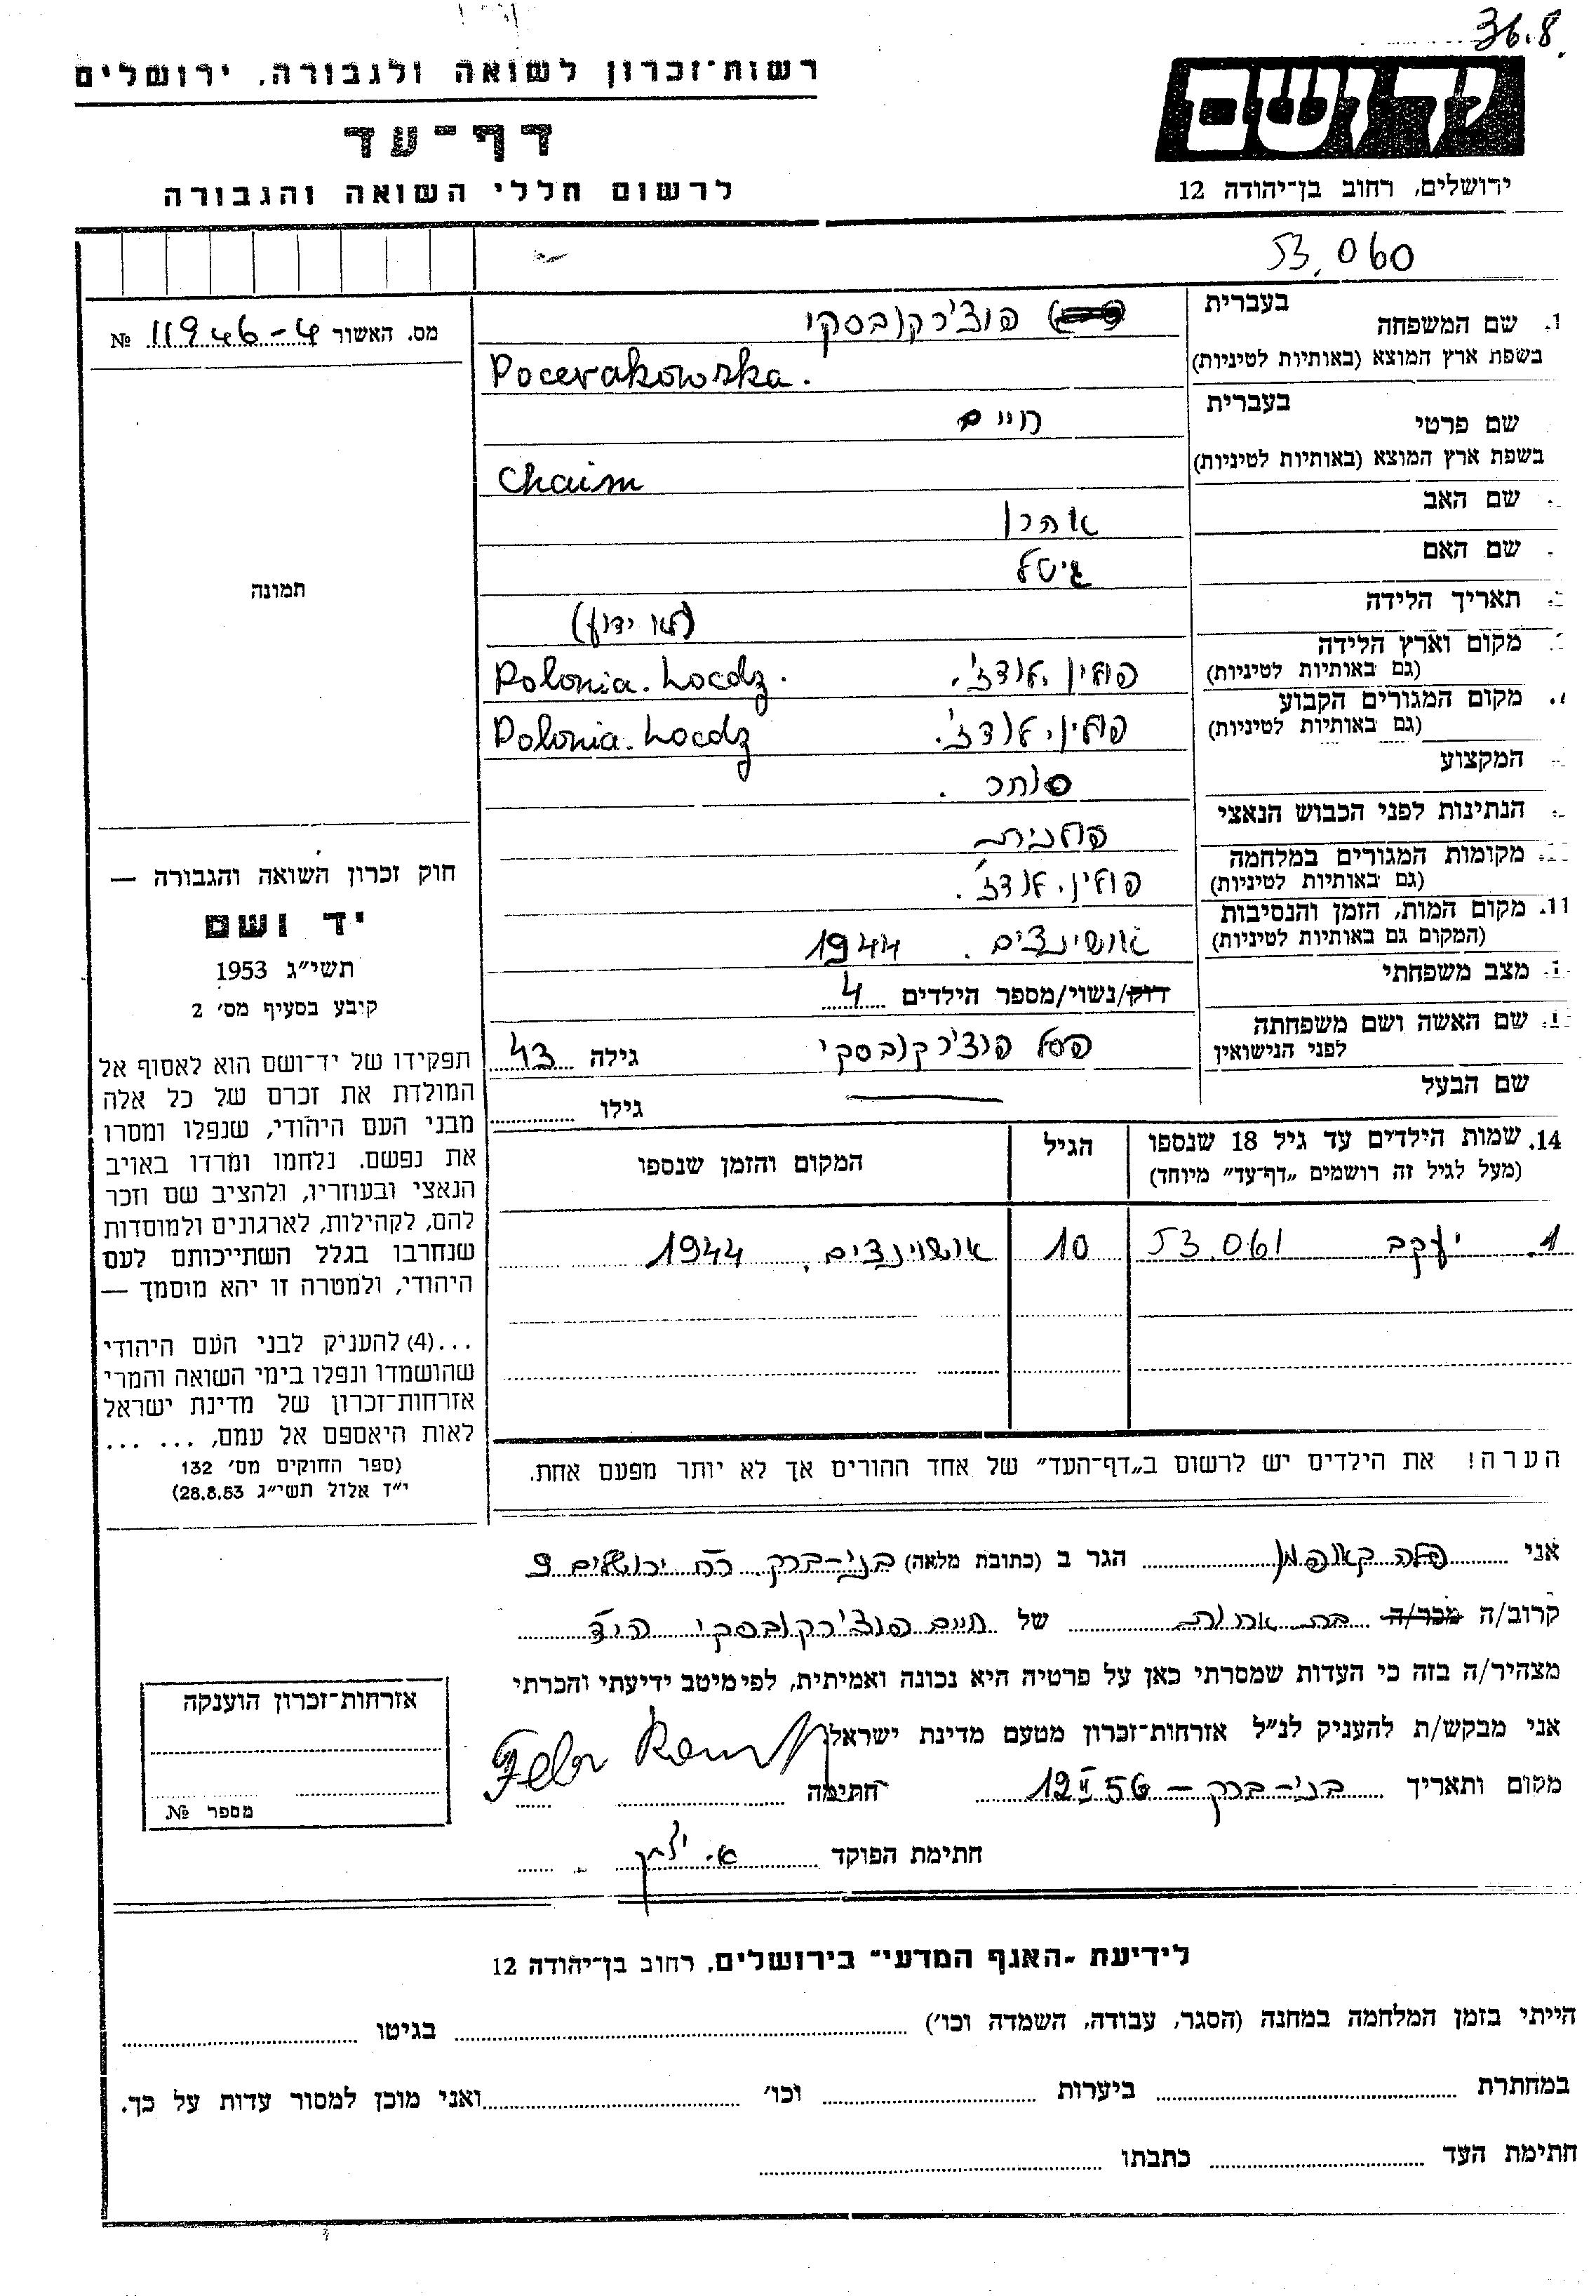 36.8
רשות־זכרון לשואה ולגבורה, ירושלים
ידושם
דף־עד
לרשום חללי השואה והגבורה
ירושלים, רחוב בן־יהודה 12
53.060
1. שם המשפחה בעברית פוצ'רקובסקי
בשפת ארץ המוצא (באותיות לטיניות) Pocerakowska.
מס. האשור 11946-4 №
שם פרטי בעברית חיים
בשפת ארץ המוצא (באותיות לטיניות) Chaim
שם האב אהרן
שם האם גיטל
תאריך הלידה (לא ידוע)
תמונה
מקום וארץ הלידה (גם באותיות לטיניות) פולין, לודז'. Polonia. Locdz.
מקום המגורים הקבוע (גם באותיות לטיניות) פולין, לודז'. Polonia. Locdz
המקצוע סוחר.
הנתינות לפני הכבוש הנאצי פולנית
מקומות המגורים במלחמה (גם באותיות לטיניות) פולין, לודז'.
11. מקום המות, הזמן והנסיבות (המקום גם באותיות לטיניות) אושינצים. 1944
מצב משפחתי רוק/נשוי/מספר הילדים 4
שם האשה ושם משפחתה לפני הנישואין פסל פוצ'רקובסקי גילה 43
שם הבעל גילו
14. שמות הילדים עד גיל 18 שנספו
(מעל לגיל זה רושמים „דף־עד" מיוחד)
הגיל
המקום והזמן שנספו
1. יעקב 53.061 10 אושוינצים. 1944
הערה! את הילדים יש לרשום ב„דף־העד" של אחד ההורים אך לא יותר מפעם אחת.
חוק זכרון השואה והגבורה —
יד ושם
תשי״ג 1953
קיבע בסעיף מס׳ 2
תפקידו של יד־ושם הוא לאסוף אל
המולדת את זכרם של כל אלה
מבני העם היהודי, שנפלו ומסרו
את נפשם. נלחמו ומרדו באויב
הנאצי ובעוזריו, ולהציב שם וזכר
להם, לקהילות, לארגונים ולמוסדות
שנחרבו בגלל השתייכותם לעם
היהודי, ולמטרה זו יהא מוסמך —
...(4) להעניק לבני העם היהודי
שהושמדו ונפלו בימי השואה והמרי
אזרחות־זכרון של מדינת ישראל
לאות היאספם אל עמם, ... ...
(ספר החוקים מס׳ 132
י״ז אלול תשי״ג 28.8.53)
אני פלה קאופמן הגר ב (כתובת מלאה) בני-ברק. רח ירושלים 9
קרוב/ה מכר/ה בת אחות של חיים פוצ'רקובסקי הי"ד
מצהיר/ה בזה כי העדות שמסרתי כאן על פרטיה היא נכונה ואמיתית, לפי מיטב ידיעתי והכרתי
אני מבקש/ת להעניק לנ״ל אזרחות־זכרון מטעם מדינת ישראל.
מקום ותאריך בני-ברק - 12 II 56 חתימה
חתימת הפוקד
אזרחות־זכרון הוענקה
מספר №
לידיעת „האגף המדעי" בירושלים, רחוב בן־יהודה 12
הייתי בזמן המלחמה במחנה (הסגר, עבודה, השמדה וכו׳) בגיטו
במחתרת ביערות וכו׳ ואני מוכן למסור עדות על כך.
חתימת העד כתבתו